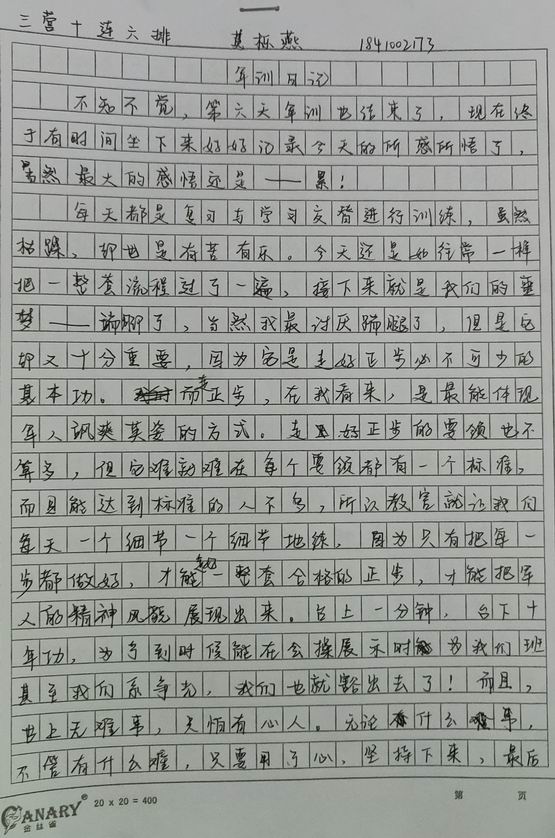 三营十连六排 莫标燕 1841002173
军训日记
不知不觉，第六天军训也结束了，现在终
于有时间坐下来好好记录今天的所感所悟了，
虽然最大的感悟还是——累！
每天都是复习与学习交替进行训练，虽然
枯躁，却也是有苦有乐。今天还是如往常一样
把一整套流程过了一遍，接下来就是我们的噩
梦——踢脚了，当然我最讨厌踢腿了，但是它
却又十分重要，因为它是走好正步必不可少的
基本功。而走正步，在我看来，是最能体现
军人飒爽英姿的方式。走好正步的要领也不
算多，但它难就难在每个要领都有一个标准，
而且能达到标准的人不多，所以教官就让我们
每天一个细节一个细节地练，因为只有把每一
步都做好，才能走好一整套合格的正步，才能把军
人的精神风貌展现出来。台上一分钟，台下十
年功，为了到时候能在会操展示时为我们班
甚至我们系争光，我们也就豁出去了！而且，
世上无难事，只怕有心人。无论有什么难事，
不管有什么难，只要用了心，坚持下来，最后
CANARY®
金丝雀
20 x 20 = 400
第 页